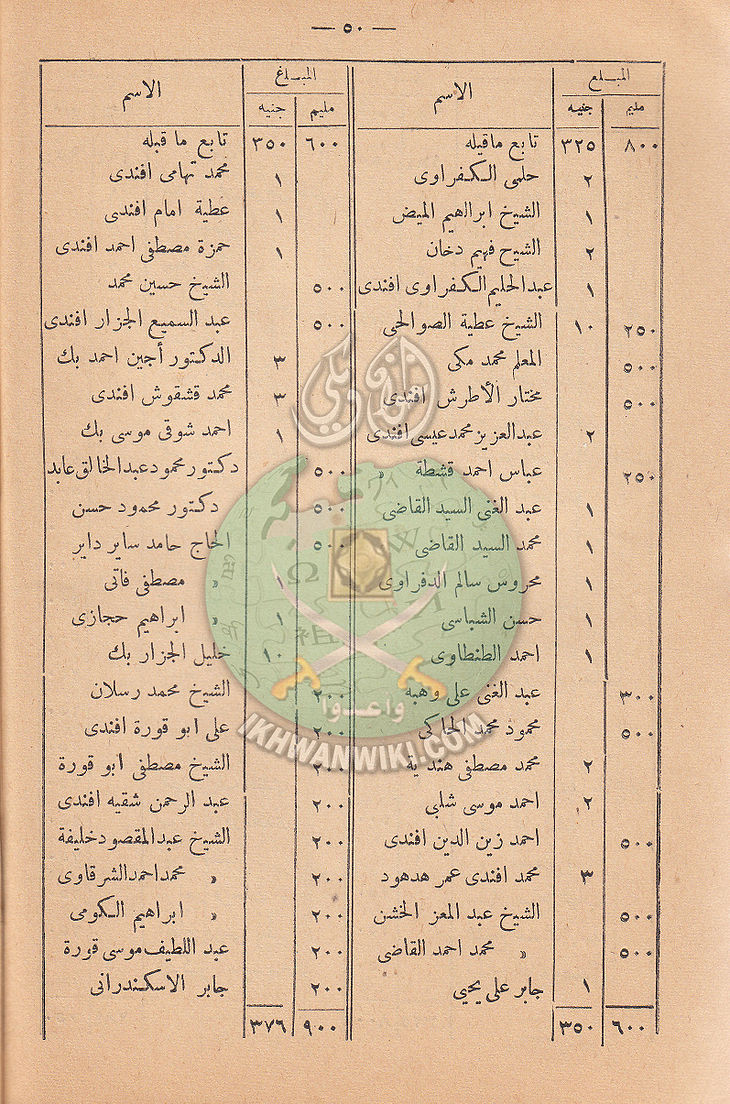 — ٥٠ —
المبلغ الاسم
مليم جنيه
٨٠٠ ٣٢٥ تابع ماقبله
٢ حلمى الكفراوى
١ الشيخ ابراهيم الميض
٢ الشيخ فهيم دخان
١ عبدالحليم الكفراوى افندى
٢٥٠ ١٠ الشيخ عطية الصوالحى
٥٠٠ المعلم محمد مكى
٥٠٠ مختار الأطرش افندى
٢ عبدالعزيز محمد عيسى افندى
٢٥٠ عباس احمد قشطة »
١ عبد الغنى السيد القاضى
١ محمد السيد القاضى
١ محروس سالم الدفراوى
١ حسن الشباسى
١ احمد الطنطاوى
٣٠٠ عبد الغنى على وهبه
٥٠٠ محمود محمد الحاكى
٢ محمد مصطفى هندية
٢ احمد موسى شلبى
٥٠٠ احمد زين الدين افندى
٣ محمد افندى عمر هدهود
٥٠٠ الشيخ عبد المعز الخشن
٥٠٠ » محمد احمد القاضى
١ جابر على يحيى
٦٠٠ ٣٥٠
المبلغ الاسم
مليم جنيه
٦٠٠ ٣٥٠ تابع ما قبله
١ محمد تهامى افندى
١ عطية امام افندى
١ حمزة مصطفى احمد افندى
٥٠٠ الشيخ حسين محمد
٥٠٠ عبد السميع الجزار افندى
٣ الدكتور أجين احمد بك
٣ محمد قشقوش افندى
١ احمد شوقى موسى بك
٥٠٠ دكتور محمود عبدالخالق عابد
٥٠٠ دكتور محمود حسن
٥٠٠ الحاج حامد ساير داير
١ » مصطفى فاتى
١ » ابراهيم حجازى
١٠ خليل الجزار بك
٢٠٠ الشيخ محمد رسلان
٢٠٠ على ابو قورة افندى
٢٠٠ الشيخ مصطفى ابو قورة
٢٠٠ عبد الرحمن شقيه افندى
٢٠٠ الشيخ عبدالمقصود خليفة
٢٠٠ » محمد احمد الشرقاوى
٢٠٠ » ابراهيم الكومى
٢٠٠ عبد اللطيف موسى قورة
٢٠٠ جابر الاسكندرانى
٩٠٠ ٣٧٦
واعدوا
IKHWANWIKI.COM